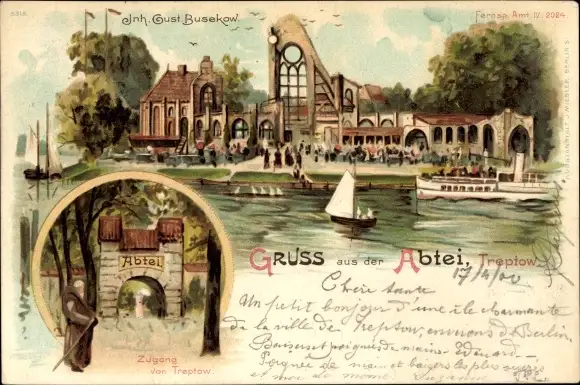 5315
Inh. Gust. Busekow.
Fernsp. Amt. IV. 2024.
Abtei
Zugang
von Treptow.
GRUSS aus der Abtei, Treptow.
17/4/00
Chère tante
Un petit bonjour d'une île charmante
de la ville de Treptow, environs de Berlin,
Baisers et poignées de mains Edouard
Poignée de main et baisers les plus